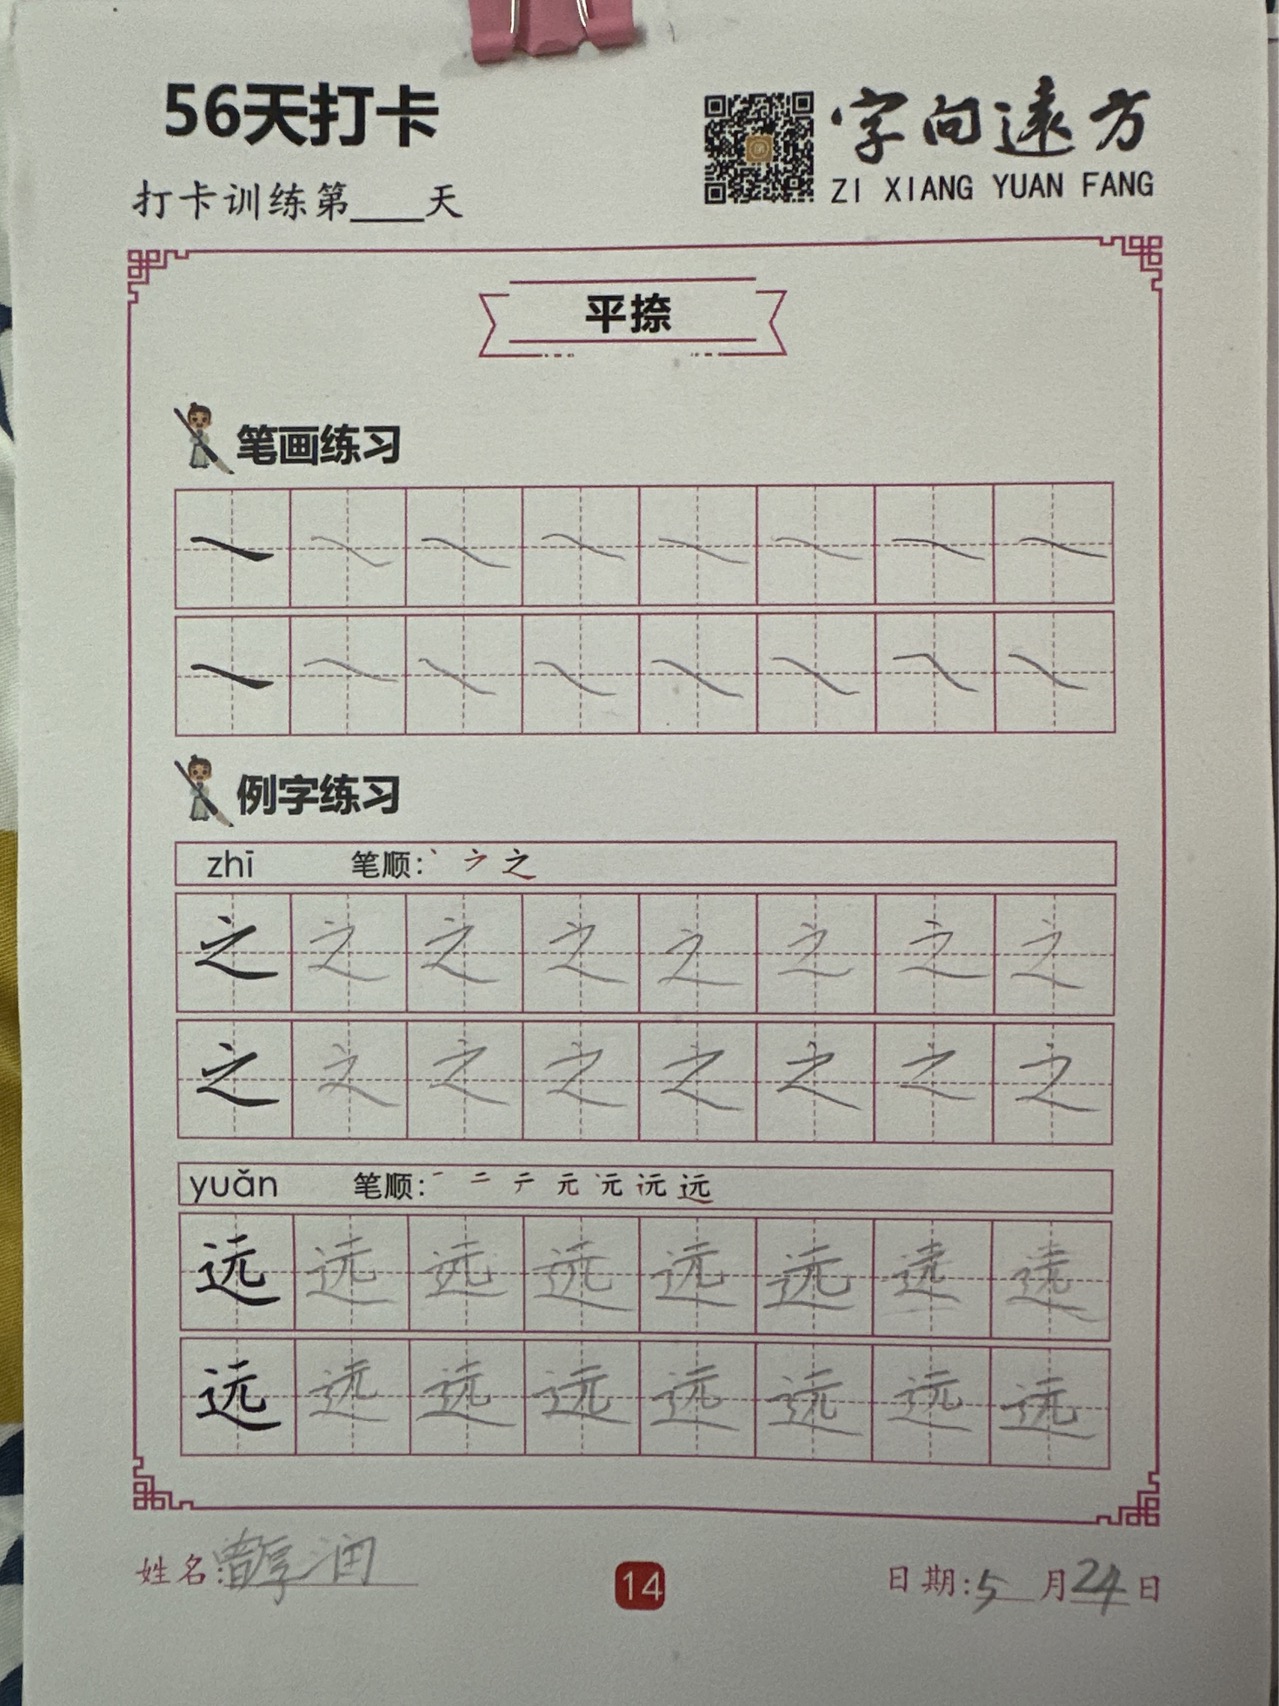 56天打卡
字向遠方
ZI XIANG YUAN FANG
打卡训练第____天
平捺
笔画练习
例字练习
zhī 笔顺: 丶 ㇇ 之
之 之 之 之 之 之 之 之
之 之 之 之 之 之 之 之
yuǎn 笔顺: 一 二 テ 元 沅 远
远 远 远 远 远 远 远 远
远 远 远 远 远 远 远 远
姓名: 润
14
日期: 5 月 24 日